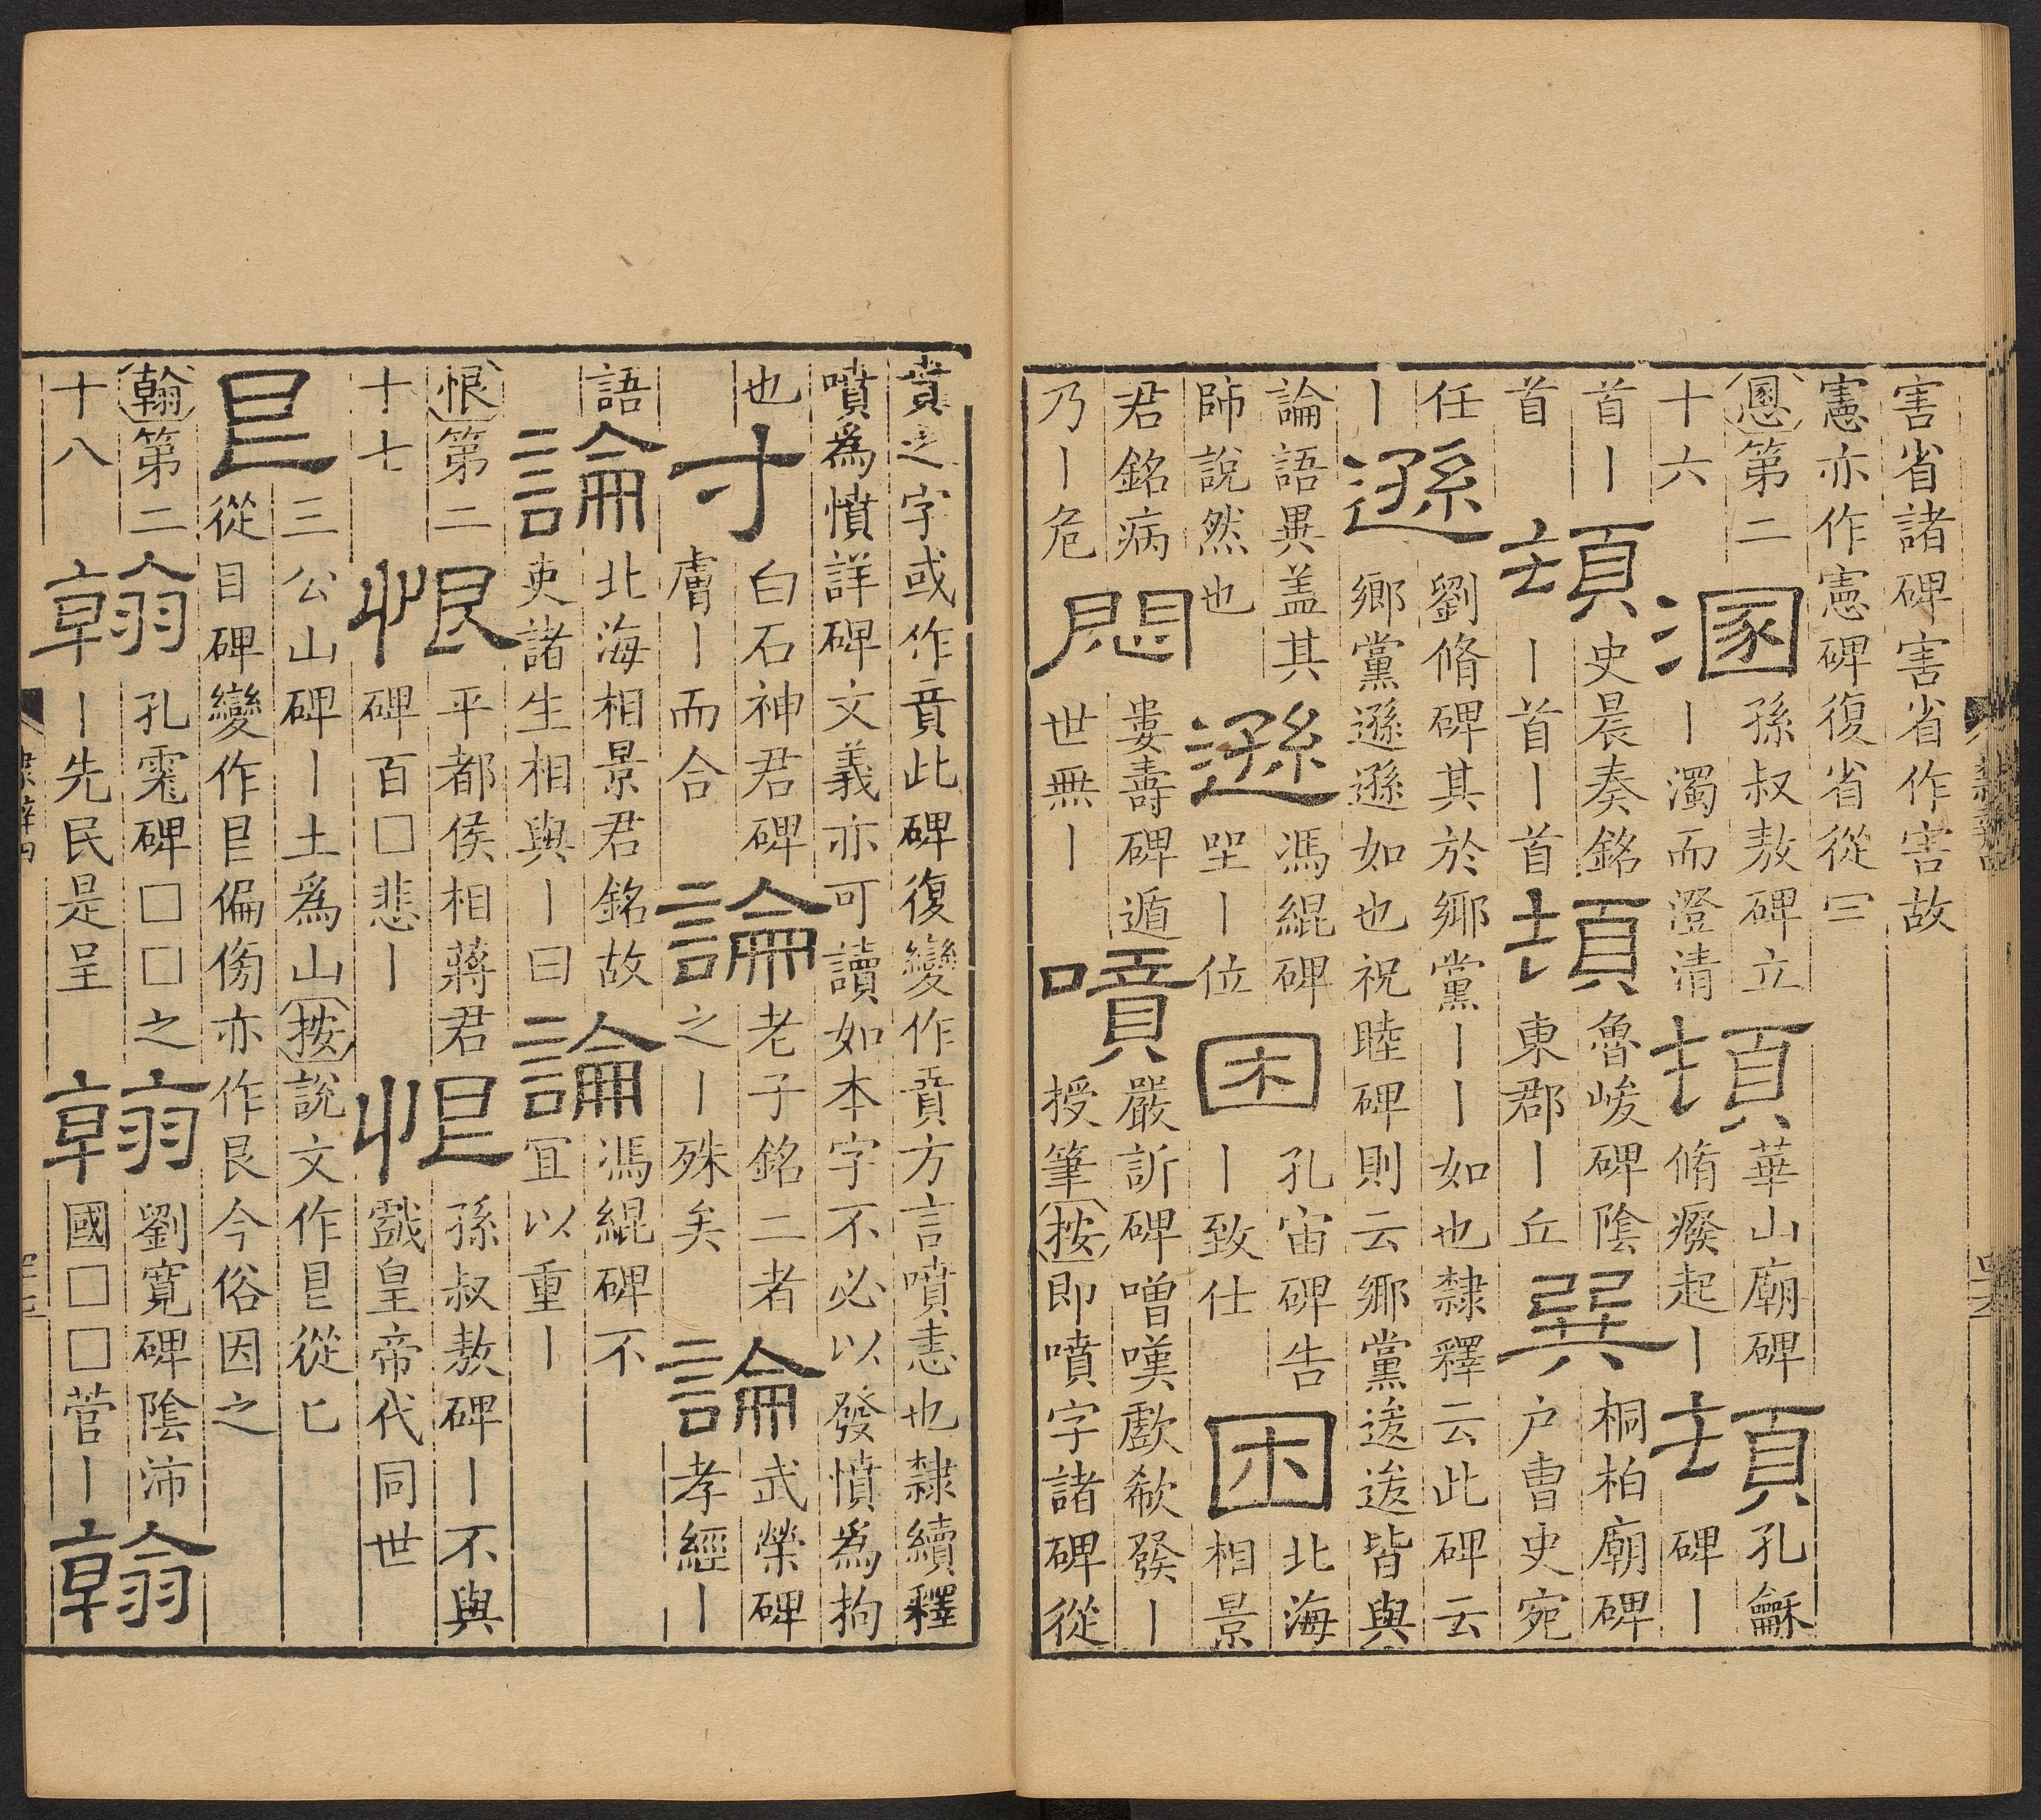 害省諸碑害省作害故
憲亦作憲碑復省從罒
慁第二
十六
溷
孫叔敖碑立
丨濁而澄清
頓
華山廟碑
脩癈起丨
頓
孔龢
碑丨
首丨
首
頓
史晨奏銘
丨首丨首
頓
魯峻碑陰
東郡丨丘
巽
桐柏廟碑
户曹史宛
任
丨
遜
劉脩碑其於鄉黨丨丨丨如也隸釋云此碑云
鄉黨遜遜如也祝睦碑則云鄉黨逡逡皆與
論語異盖其
師說然也
遜
馮緄碑
丨位
困
孔宙碑告
丨致仕
困
北海
相景
君銘病
乃丨危
悶
婁壽碑遁
世無丨
噴
嚴訢碑噌嘆歔欷發丨
授筆按即噴字諸碑從
賁之字或作賁此碑復變作賁方言噴恚也隸續釋
噴爲憤詳碑文義亦可讀如本字不必以發憤爲拘
也
寸
白石神君碑
膚丨而合
論
老子銘二者
之丨殊矣
論
武榮碑
孝經丨
語
論
北海相景君銘故
吏諸生相與丨曰
論
馮緄碑不
宜以重丨
恨第二
十七
恨
平都侯相蔣君
碑百□悲丨
恨
孫叔敖碑丨不與
戲皇帝代同世
皀
三公山碑丨土爲山按說文作皀從匕
從目碑變作皀偏傍亦作艮今俗因之
翰第二
十八
翰
孔霓碑□□之
丨先民是呈
翰
劉寬碑陰沛
國□□菅丨
翰